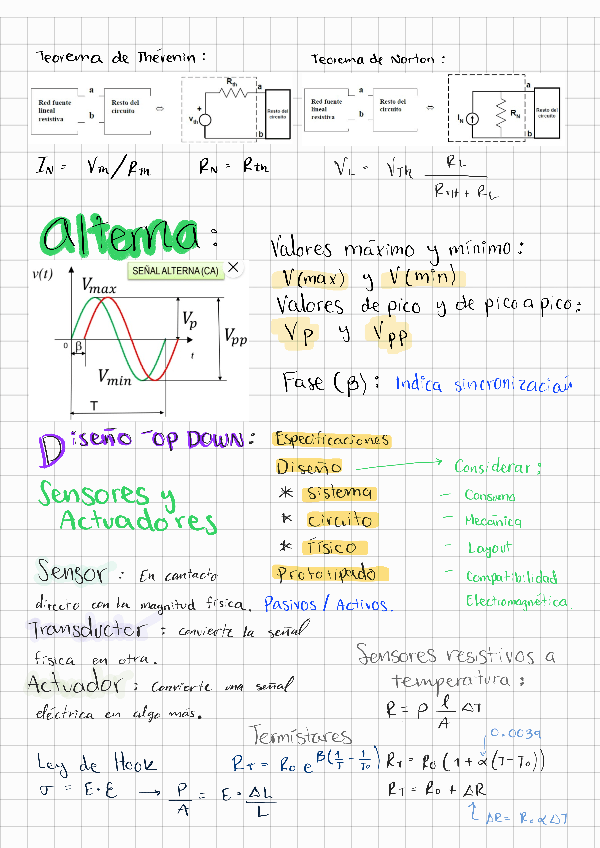 Teorema de Thévenin :
Teorema de Norton :
Red fuente lineal resistiva
a
b
Resto del circuito
⇔
Rth
+
Vth
a
b
Resto del circuito
Red fuente lineal resistiva
a
b
Resto del circuito
⇔
IN
RN
a
b
Resto del circuito
IN = Vth/Rth
RN = Rth
VL = VTh RL / (RTH + RL)
alterna :
v(t)
SEÑAL ALTERNA (CA)
Vmax
Vp
Vpp
0
β
t
Vmin
T
Valores máximo y mínimo :
V(max) y V(min)
Valores de pico y de pico a pico :
Vp y Vpp
Fase (β) : Indica sincronización
Diseño TOP DOWN :
Especificaciones
Diseño → Considerar :
* Sistema
* circuito
* físico
Prototipado
- Consumo
- Mecánica
- Layout
- Compatibilidad
Electromagnética.
Sensores y
Actuadores
Sensor : En contacto
directo con la magnitud física. Pasivos / Activos.
Transductor : convierte la señal
física en otra.
Actuador : Convierte una señal
eléctrica en algo más.
Sensores resistivos a
temperatura :
R = ρ l/A ΔT
0.0039
RT = R0 (1 + α (T - T0))
RT = R0 + ΔR
ΔR = R0 α ΔT
Termistores
RT = R0 e^β(1/T - 1/T0)
Ley de Hook
σ = E · ε → P/A = E · ΔL/L